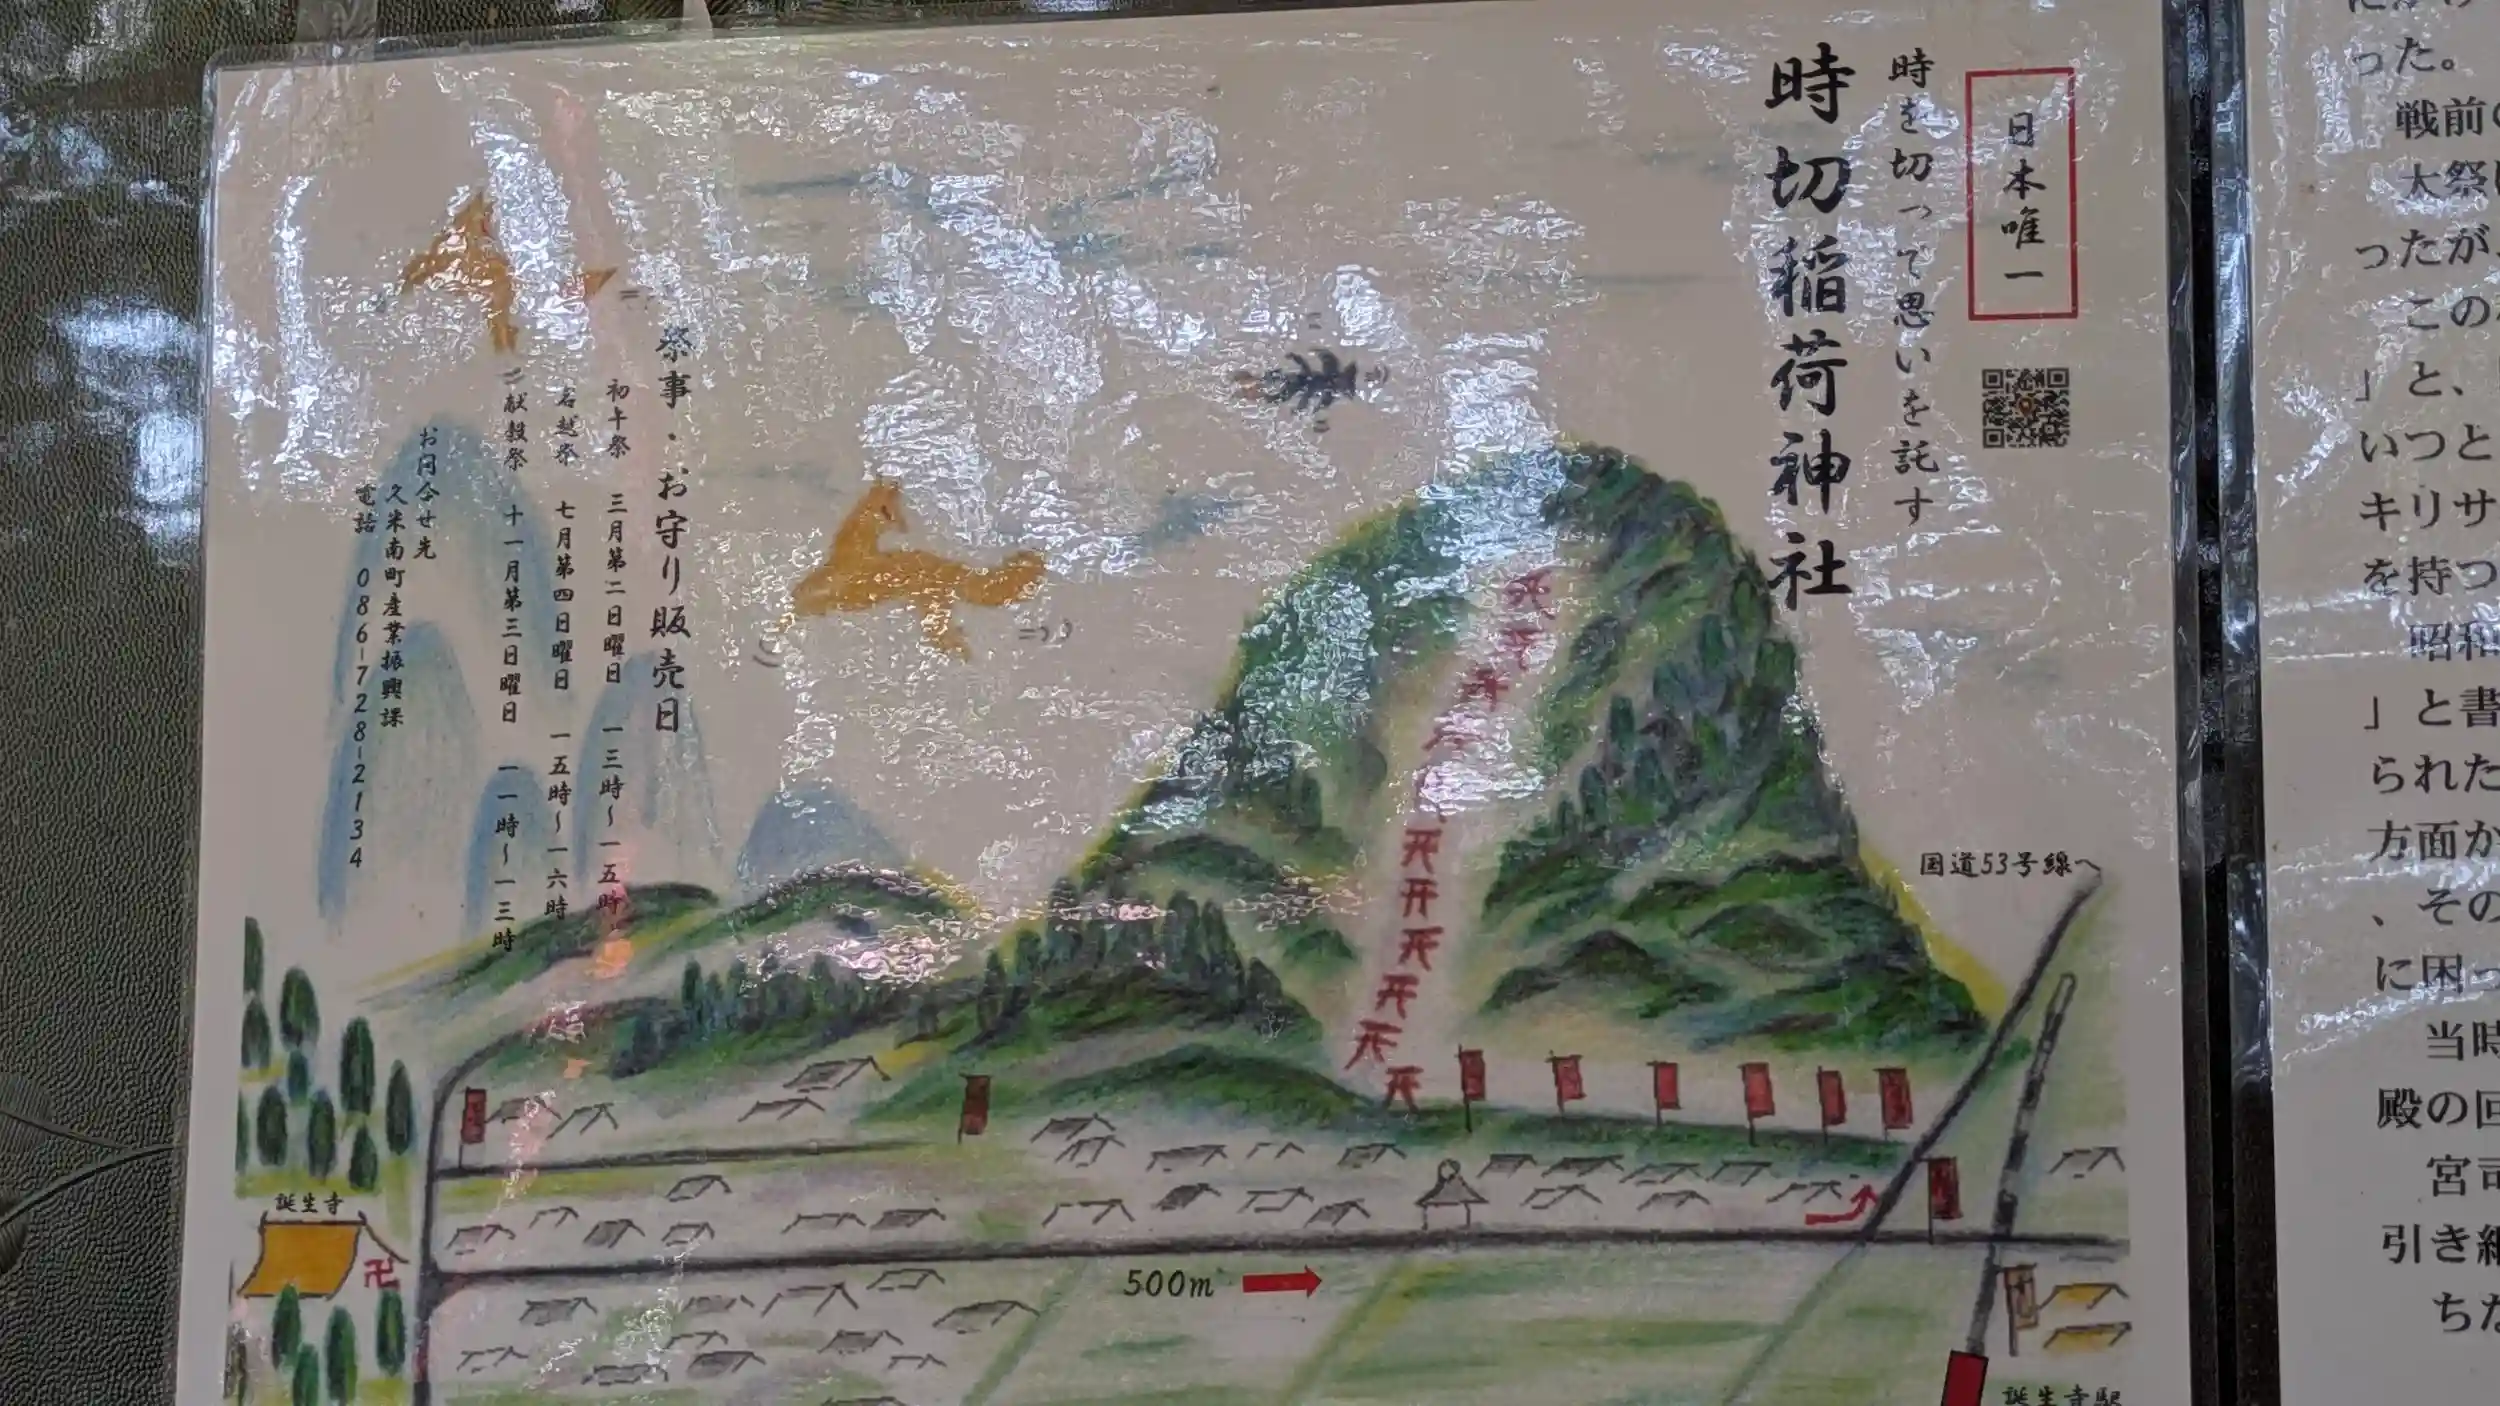 日本唯一
時を切って思いを託す
時切稲荷神社
祭事・お守り販売日
初午祭 三月第二日曜日 一三時〜一五時
名越祭 七月第四日曜日 一五時〜一六時
献穀祭 十一月第三日曜日 一一時〜一三時
お問合せ先
久米南町産業振興課
電話 086-728-2134
国道53号線
誕生寺
卍
500m
誕生寺駅
った。
戦前
大祭
ったが、
この
」と、
いつと
キリサ
を持つ
昭和
」と書
られた
方面か
、その
に困っ
当時
殿の回
宮司
引き継
ちな